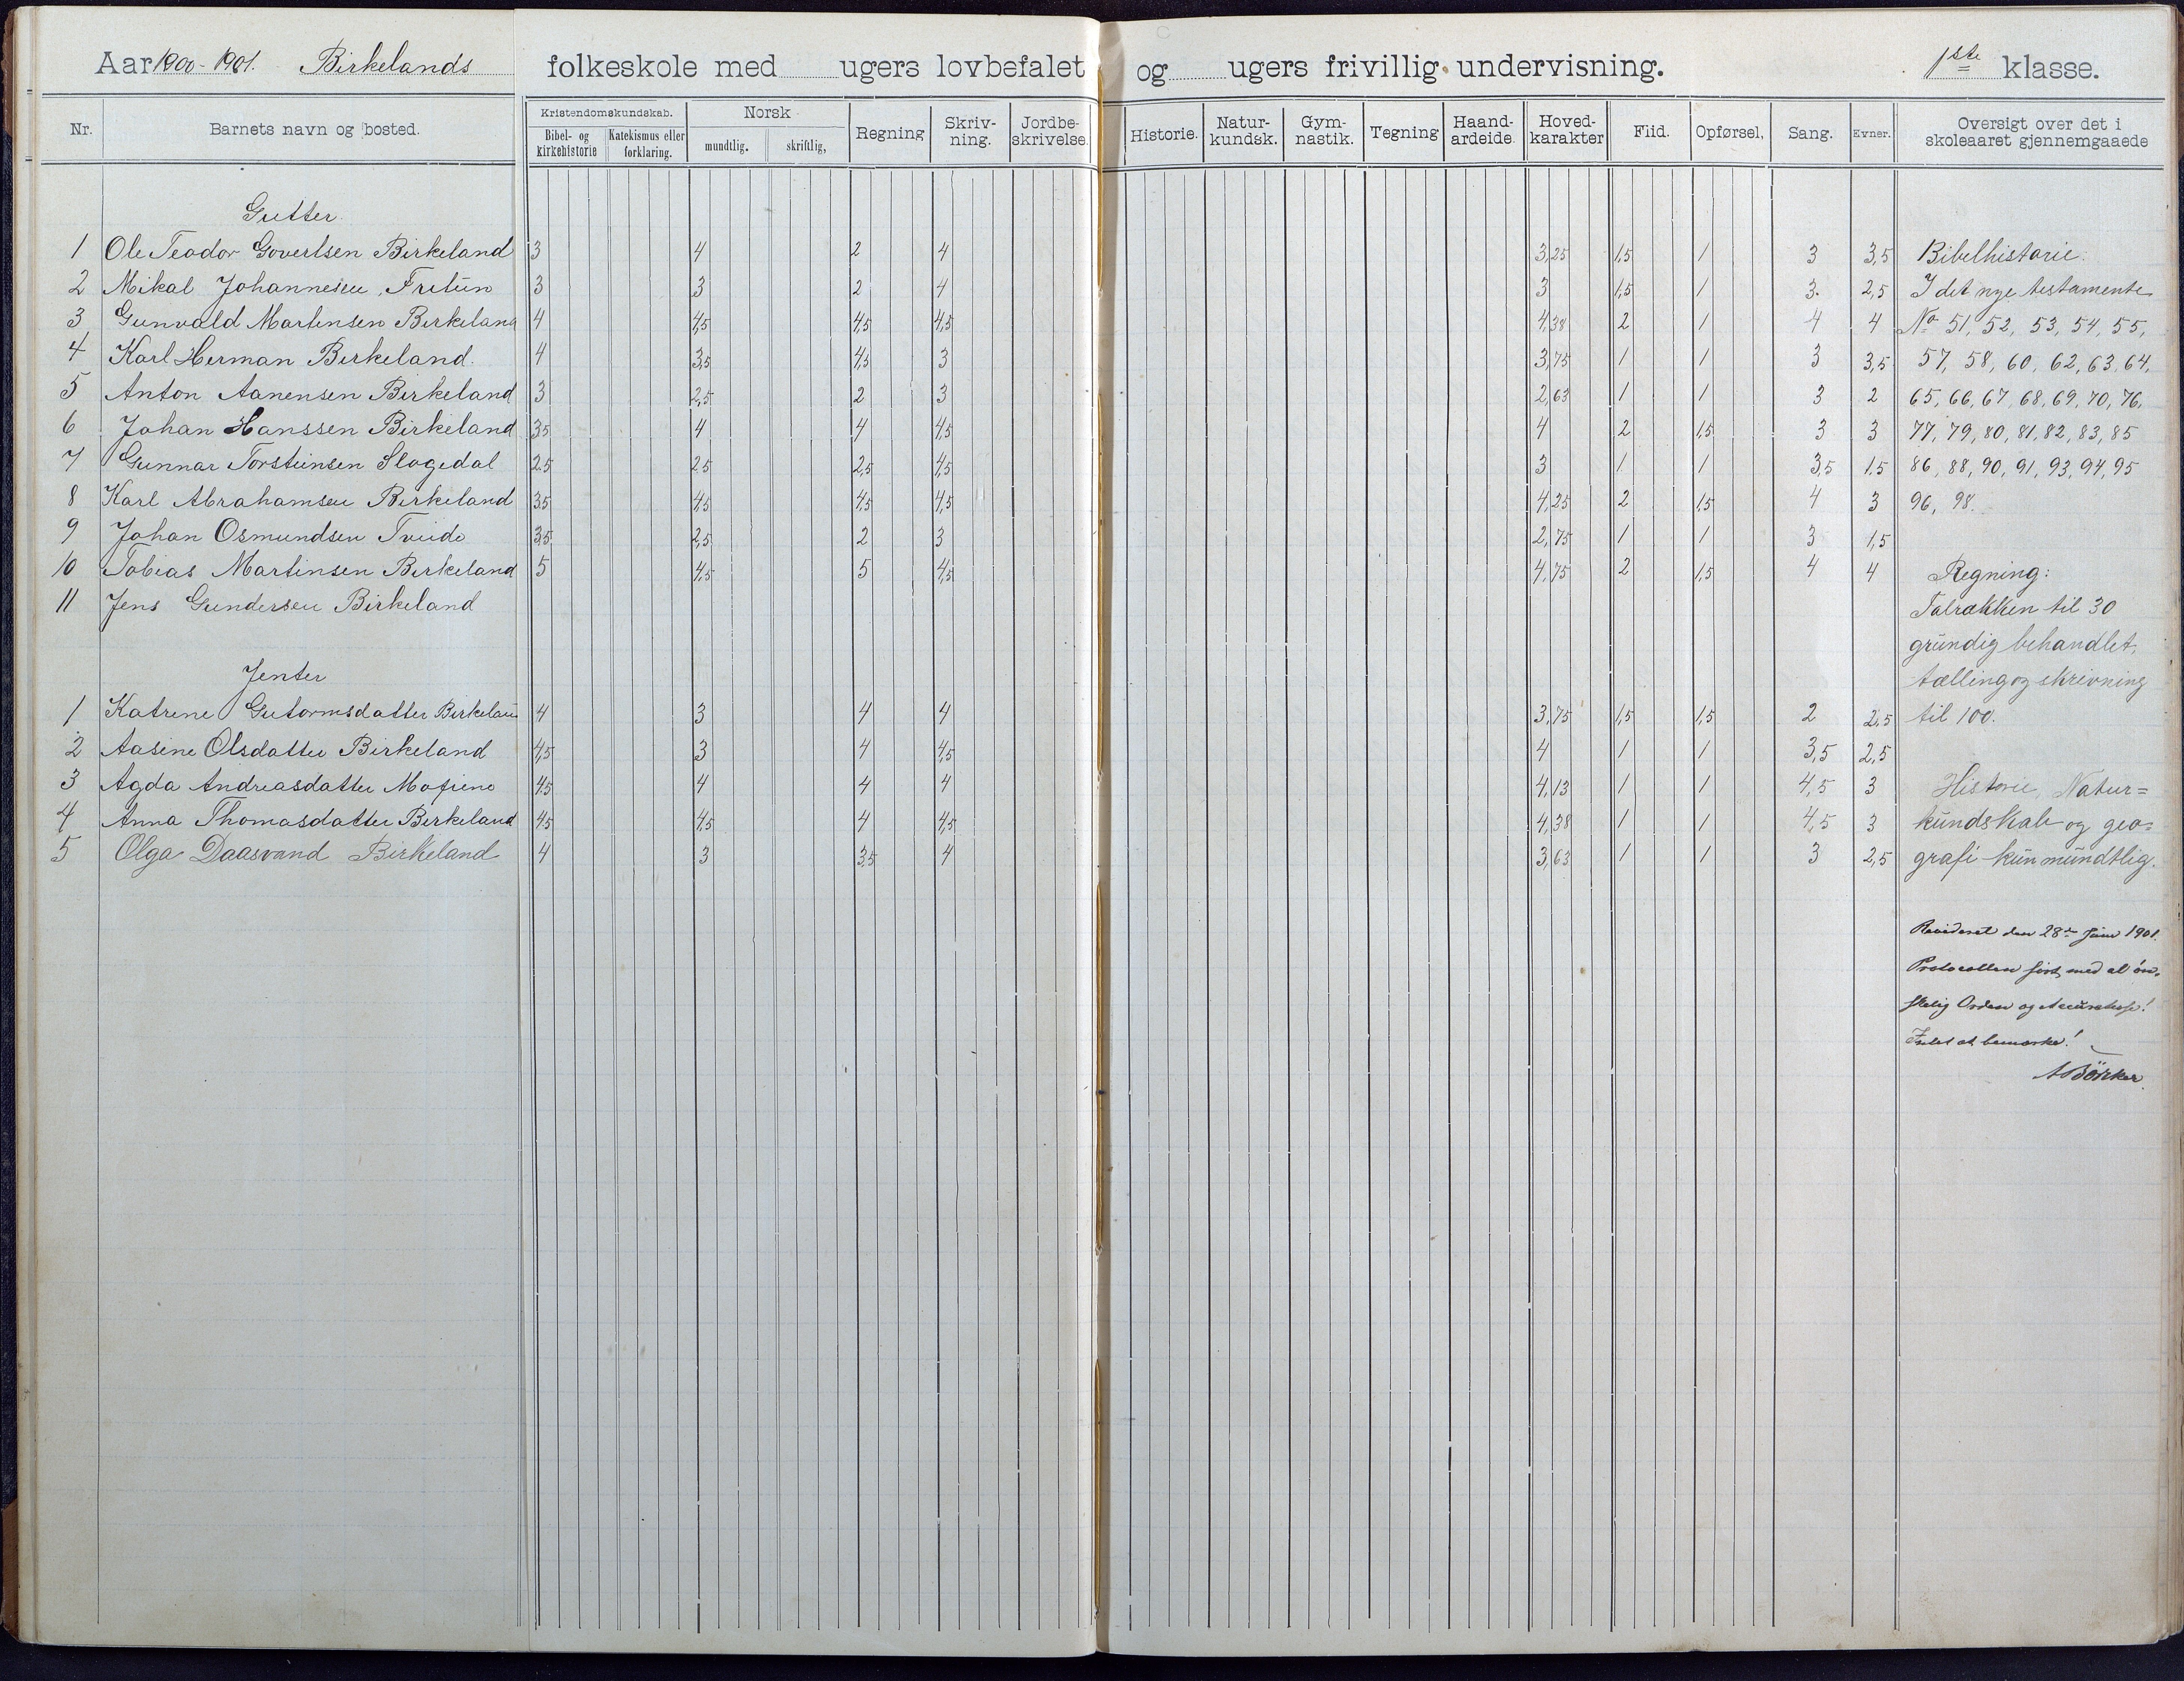 Aar 1900-1901. Birkelands folkeskole med ugers lovbefalet og ugers frivillig undervisning. 1ste klasse.
Nr. Barnets navn og bosted. Kristendomskundskab. Bibel- og kirkehistorie Katekismus eller forklaring. Norsk mundtlig. skriftlig, Regning Skriv-ning. Jordbe-skrivelse. Historie. Natur-kundsk. Gym-nastik. Tegning Haand-ardeide. Hoved-karakter Flid. Opførsel, Sang. Evner. Oversigt over det i skoleaaret gjennemgaaede
Gutter.
1 Ole Teodor Govertsen Birkeland 3 4 2 4 3,25 1,5 1 3 3,5 Bibelhistorie.
2 Mikal Johannesen, Fritun 3 3 2 4 3 1,5 1 3. 2,5 I det nye testamente
3 Gunvald Martensen Birkeland 4 4,5 4,5 4,5 4,38 2 1 4 4 No 51, 52, 53, 54, 55,
4 Karl Herman Birkeland. 4 3,5 4,5 3 3,75 1 1 3 3,5 57, 58, 60, 62, 63, 64,
5 Anton Aanensen Birkeland 3 2,5 2 3 2,63 1 1 3 2 65, 66, 67, 68, 69, 70, 76,
6 Johan Hanssen Birkeland 3,5 4 4 4,5 4 2 1,5 3 3 77, 79, 80, 81, 82, 83, 85
7 Gunnar Torsteinsen Slogedal 2,5 2,5 2,5 4,5 3 1 1 3,5 1,5 86, 88, 90, 91, 93, 94, 95
8 Karl Abrahamsen Birkeland 3,5 4,5 4,5 4,5 4,25 2 1,5 4 3 96, 98.
9 Johan Osmundsen Tveide 3,5 2,5 2 3 2,75 1 1 3 1,5
10 Tobias Martinsen Birkeland 5 4,5 5 4,5 4,75 2 1,5 4 4 Regning:
11 Jens Gundersen Birkeland Talrækken til 30
grundig behandlet,
Jenter tælling og skrivning
1 Katrene Gutormsdatter Birkeland 4 3 4 4 3,75 1,5 1,5 2 2,5 til 100.
2 Aasine Olsdatter Birkeland 4,5 3 4 4,5 4 1 1 3,5 2,5
3 Agda Andreasdatter Mosine 4,5 4 4 4 4,13 1 1 4,5 3 Historie, Natur=
4 Anna Thomasdatter Birkeland 4,5 4,5 4 4,5 4,38 1 1 4,5 3 kundskab og geo=
5 Olga Daasvand Birkeland 4 3 3,5 4 3,63 1 1 3 2,5 grafi kun mundtlig.
Revideret den 28de Juni 1901.
Protocollen ført med al øn-
skelig Orden og Accuratesse!
Intet at bemærke!